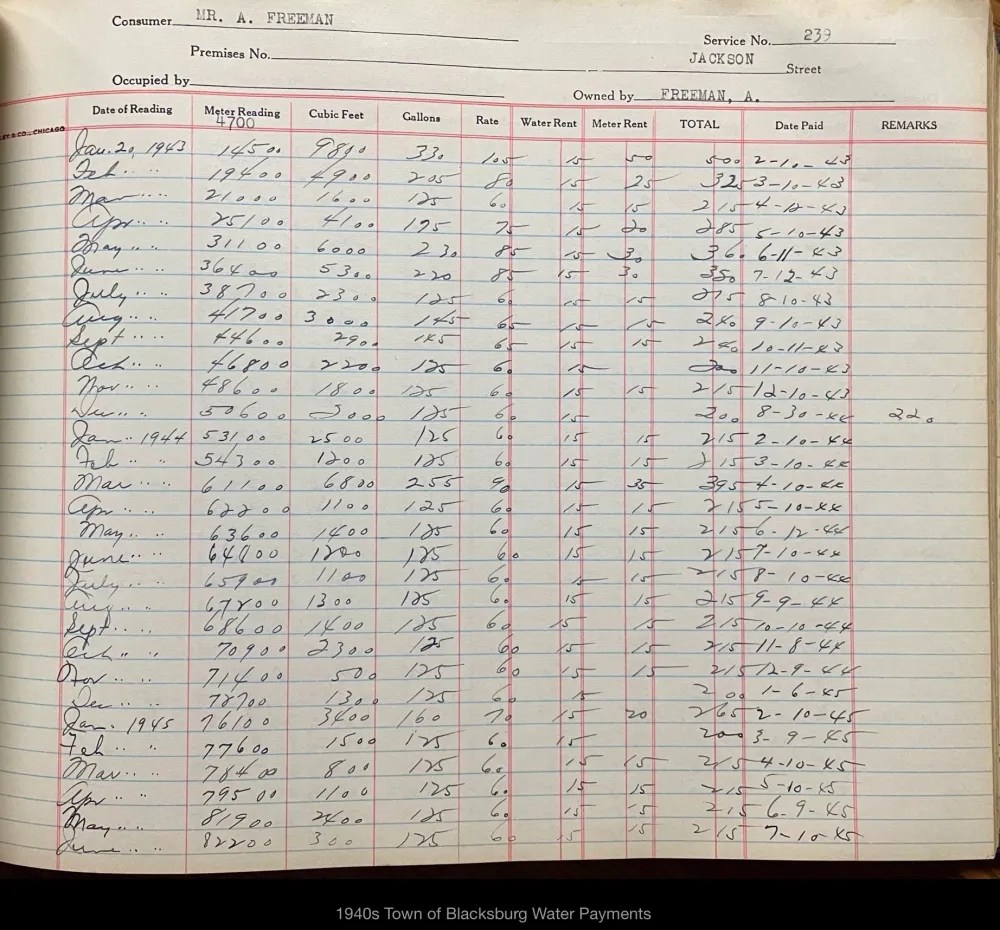 Consumer MR. A. FREEMAN
Service No. 239
Premises No. JACKSON Street
Occupied by
Owned by FREEMAN, A.
Date of Reading Meter Reading Cubic Feet Gallons Rate Water Rent Meter Rent TOTAL Date Paid REMARKS
4700
CO., CHICAGO
Jan. 20, 1943 14500 9800 330 105 15 50 500 2-10-43
Feb. " " 19400 4900 205 80 15 25 325 3-10-43
Mar " " 21000 1600 125 60 15 15 215 4-12-43
Apr. " " 25100 4100 195 75 15 20 285 5-10-43
May " " 31100 6000 230 85 15 30 360 6-11-43
June " " 36400 5300 220 85 15 30 350 7-12-43
July " " 38700 2300 125 60 15 15 215 8-10-43
Aug. " " 41700 3000 145 65 15 15 240 9-10-43
Sept " " 44600 2900 145 65 15 15 240 10-11-43
Oct. " " 46800 2200 125 60 15 200 11-10-43
Nov. " " 48600 1800 125 60 15 15 215 12-10-43
Dec. " " 50600 2000 125 60 15 200 8-30-44 220
Jan " 1944 53100 2500 125 60 15 15 215 2-10-44
Feb " " 54300 1200 125 60 15 15 215 3-10-44
Mar " " 61100 6800 255 90 15 35 395 4-10-44
Apr " " 62200 1100 125 60 15 15 215 5-10-44
May " " 63600 1400 125 60 15 15 215 6-12-44
June " " 64800 1200 125 60 15 15 215 7-10-44
July " " 65900 1100 125 60 15 15 215 8-10-44
Aug " " 67200 1300 125 60 15 15 215 9-9-44
Sept " " 68600 1400 125 60 15 15 215 10-10-44
Oct " " 70900 2300 125 60 15 15 215 11-8-44
Nov " " 71400 500 125 60 15 15 215 12-9-44
Dec " " 72700 1300 125 60 15 200 1-6-45
Jan. 1945 76100 3400 160 70 15 20 265 2-10-45
Feb " " 77600 1500 125 60 15 200 3-9-45
Mar " " 78400 800 125 60 15 15 215 4-10-45
Apr " " 79500 1100 125 60 15 15 215 5-10-45
May " " 81900 2400 125 60 15 15 215 6-9-45
June " " 82200 300 125 60 15 15 215 7-10-45
1940s Town of Blacksburg Water Payments